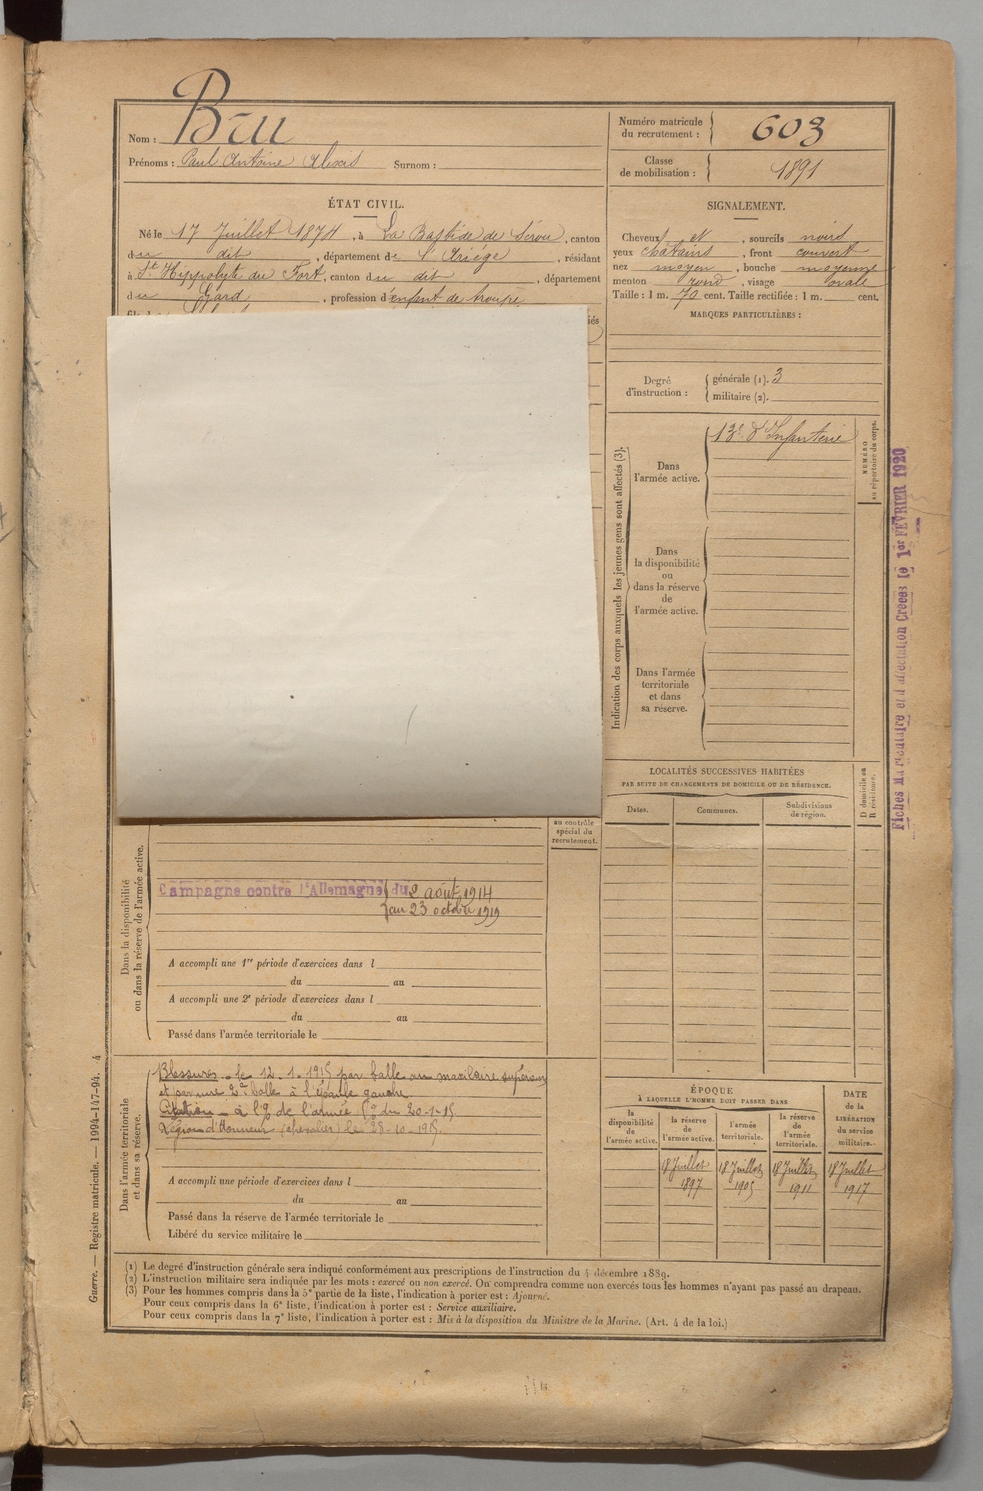 Nom : Bru
Prénoms : Paul Antoine Alexis Surnom :
Numéro matricule du recrutement : 603
Classe de mobilisation : 1891
ÉTAT CIVIL.
Né le 17 Juillet 1874, à La Bastide de Sérou, canton
du dit, département de l'Ariège, résidant
à St Hippolyte du Fort, canton du dit, département
du Gard, profession d'enfant de troupe
SIGNALEMENT.
Cheveux et, sourcils noirs
yeux châtains, front couvert
nez moyen, bouche moyenne
menton rond, visage ovale
Taille : 1 m. 70 cent. Taille rectifiée : 1 m. cent.
MARQUES PARTICULIÈRES :
Degré d'instruction : générale (1). 3
militaire (2).
Indication des corps auxquels les jeunes gens sont affectés (3).
Dans l'armée active.
13e d'Infanterie
NUMÉRO au répertoire du corps.
Dans
la disponibilité
ou
dans la réserve
de
l'armée active.
Dans l'armée
territoriale
et dans
sa réserve.
Fiches Matriculaire et d'affectation Créées le 1er FÉVRIER 1920
LOCALITÉS SUCCESSIVES HABITÉES
PAR SUITE DE CHANGEMENTS DE DOMICILE OU DE RÉSIDENCE.
Dates. Communes. Subdivisions de région. D domicile ou R résidence.
au contrôle
spécial du
recrutement.
Dans la disponibilité
ou dans la réserve de l'armée active.
Campagne contre l'Allemagne du 2 août 1914
au 23 octobre 1919
A accompli une 1re période d'exercices dans l
du au
A accompli une 2e période d'exercices dans l
du au
Passé dans l'armée territoriale le
Dans l'armée territoriale
et dans sa réserve.
Blessures - le 12.1.1915 par balle au maxilaire supérieur
et par une 2e balle à l'épaule gauche
Citation - à l'o. de l'armée du 20-1-15.
Légion d'Honneur (chevalier) le 28-10-1915.
A accompli une période d'exercices dans l
du au
Passé dans la réserve de l'armée territoriale le
Libéré du service militaire le
ÉPOQUE
À LAQUELLE L'HOMME DOIT PASSER DANS
DATE de la LIBÉRATION du service militaire.
la disponibilité de l'armée active. la réserve de l'armée active. l'armée territoriale. la réserve de l'armée territoriale.
18 Juillet 1897 18 Juillet 1905 18 Juillet 1911 18 Juillet 1917
(1) Le degré d'instruction générale sera indiqué conformément aux prescriptions de l'instruction du 4 décembre 1889.
(2) L'instruction militaire sera indiquée par les mots : exercé ou non exercé. On comprendra comme non exercés tous les hommes n'ayant pas passé au drapeau.
(3) Pour les hommes compris dans la 5e partie de la liste, l'indication à porter est : Ajourné.
Pour ceux compris dans la 6e liste, l'indication à porter est : Service auxiliaire.
Pour ceux compris dans la 7e liste, l'indication à porter est : Mis à la disposition du Ministre de la Marine. (Art. 4 de la loi.)
Guerre. — Registre matricule. — 1994-147-94. 4